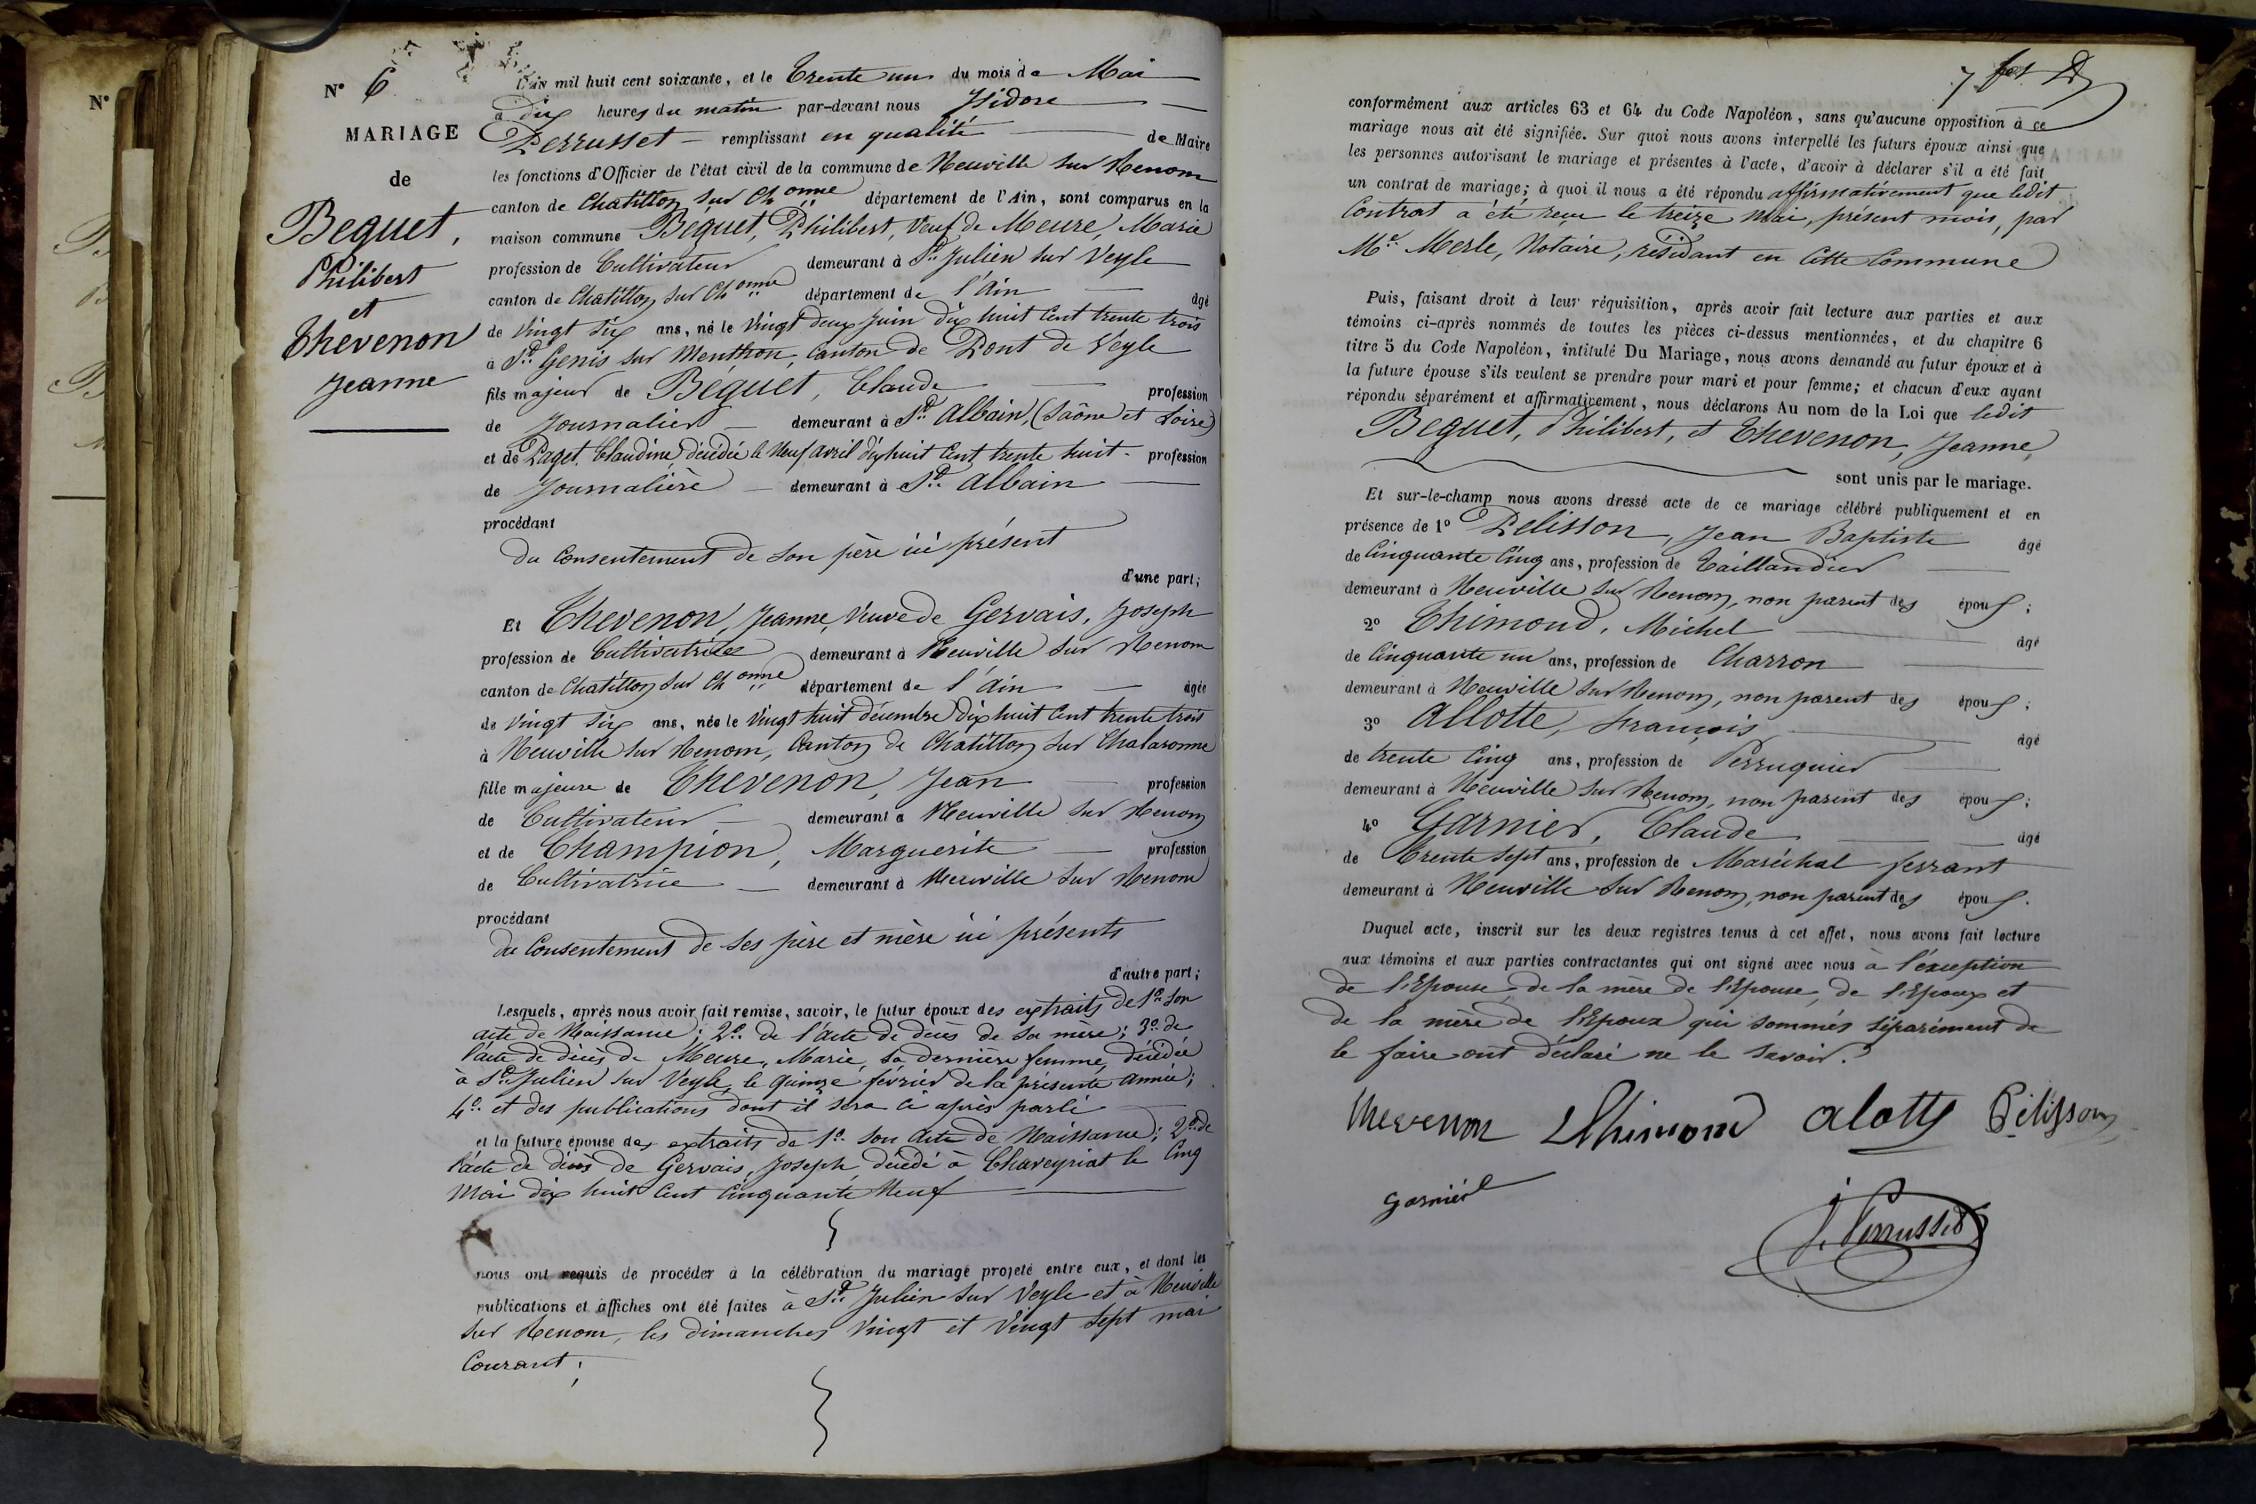 N° 6
MARIAGE
de
Bequet,
Philibert
et
Thevenon
Jeanne
L'an mil huit cent soixante, et le Trente un du mois de Mai
à dix heures du matin par-devant nous Isidore
Perrusset remplissant en qualité de Maire
les fonctions d'Officier de l'état civil de la commune de Neuville sur Renom
canton de Chatillon sur Chonne département de l'Ain, sont comparus en la
maison commune Béquet, Philibert, Veuf de Meure, Marie
profession de Cultivateur demeurant à St. Julien sur Veyle
canton de Chatillon sur Chonne département de l'Ain âgé
de Vingt six ans, né le Vingt deux Juin dix huit Cent trente trois
à St. Genis sur Menthon, Canton de Pont de Veyle
fils majeur de Béquet, Claude profession
de Journalier demeurant à St. Albain, (Saône et Loire)
et de Paget, Claudine, décédée le Neuf avril dix huit Cent trente huit - profession
de Journalière demeurant à St. Albain
procédant
du Consentement de son père ici présent
d'une part;
Et Thevenon, Jeanne, Veuve de Gervais, Joseph
profession de Cultivatrice demeurant à Neuville sur Renom
canton de Chatillon sur Chonne département de l'Ain âgée
de Vingt six ans, née le Vingt huit décembre dix huit Cent trente trois
à Neuville sur Renom, Canton de Chatillon sur Chalaronne
fille majeure de Thevenon, Jean profession
de Cultivateur demeurant à Neuville sur Renom
et de Champion, Marguerite profession
de Cultivatrice demeurant à Neuville sur Renom
procédant
du Consentement de ses père et mère ici présents
d'autre part;
Lesquels, après nous avoir fait remise, savoir, le futur époux des extraits de 1° son
acte de Naissance; 2° de l'acte de décès de sa mère; 3° de
l'acte de décès de Meure, Marie, sa dernière femme, décédée
à St. Julien sur Veyle, le quinze février de la présente année;
4° et des publications dont il sera ci après parlé
et la future épouse des extraits de 1° son acte de Naissance; 2° de
l'acte de décès de Gervais, Joseph, décédé à Chaveyriat le Cinq
Mai dix huit Cent Cinquante Neuf
nous ont requis de procéder à la célébration du mariage projeté entre eux, et dont les
publications et affiches ont été faites à St. Julien sur Veyle et à Neuville
sur Renom, les dimanches Vingt et Vingt sept mai
Courant;
7
conformément aux articles 63 et 64 du Code Napoléon, sans qu'aucune opposition à ce
mariage nous ait été signifiée. Sur quoi nous avons interpellé les futurs époux ainsi que
les personnes autorisant le mariage et présentes à l'acte, d'avoir à déclarer s'il a été fait
un contrat de mariage; à quoi il nous a été répondu affirmativement que ledit
Contrat a été reçu le treize Mai, présent mois, par
Me. Merle, Notaire, résidant en Cette Commune
Puis, faisant droit à leur réquisition, après avoir fait lecture aux parties et aux
témoins ci-après nommés de toutes les pièces ci-dessus mentionnées, et du chapitre 6
titre 5 du Code Napoléon, intitulé Du Mariage, nous avons demandé au futur époux et à
la future épouse s'ils veulent se prendre pour mari et pour femme; et chacun d'eux ayant
répondu séparément et affirmativement, nous déclarons Au nom de la Loi que ledit
Bequet, Philibert, et Thevenon, Jeanne,
sont unis par le mariage.
Et sur-le-champ nous avons dressé acte de ce mariage célébré publiquement et en
présence de 1° Pelisson, Jean Baptiste âgé
de Cinquante Cinq ans, profession de Taillandier
demeurant à Neuville sur Renom, non parent des époux;
2° Thimond, Michel âgé
de Cinquante un ans, profession de Charron
demeurant à Neuville sur Renom, non parent des époux;
3° Allotte, François âgé
de trente Cinq ans, profession de Perruquier
demeurant à Neuville sur Renom, non parent des époux;
4° Garnier, Claude âgé
de Trente Sept ans, profession de Maréchal ferrant
demeurant à Neuville sur Renom, non parent des époux.
Duquel acte, inscrit sur les deux registres tenus à cet effet, nous avons fait lecture
aux témoins et aux parties contractantes qui ont signé avec nous à l'exception
de l'Epouse, de la mère de l'Epouse, de l'Epoux et
de la mère de l'Epoux qui sommés séparément de
le faire ont déclaré ne le savoir.
thevenon Thimond alotte Pélisson
garnier
J. Perrusset